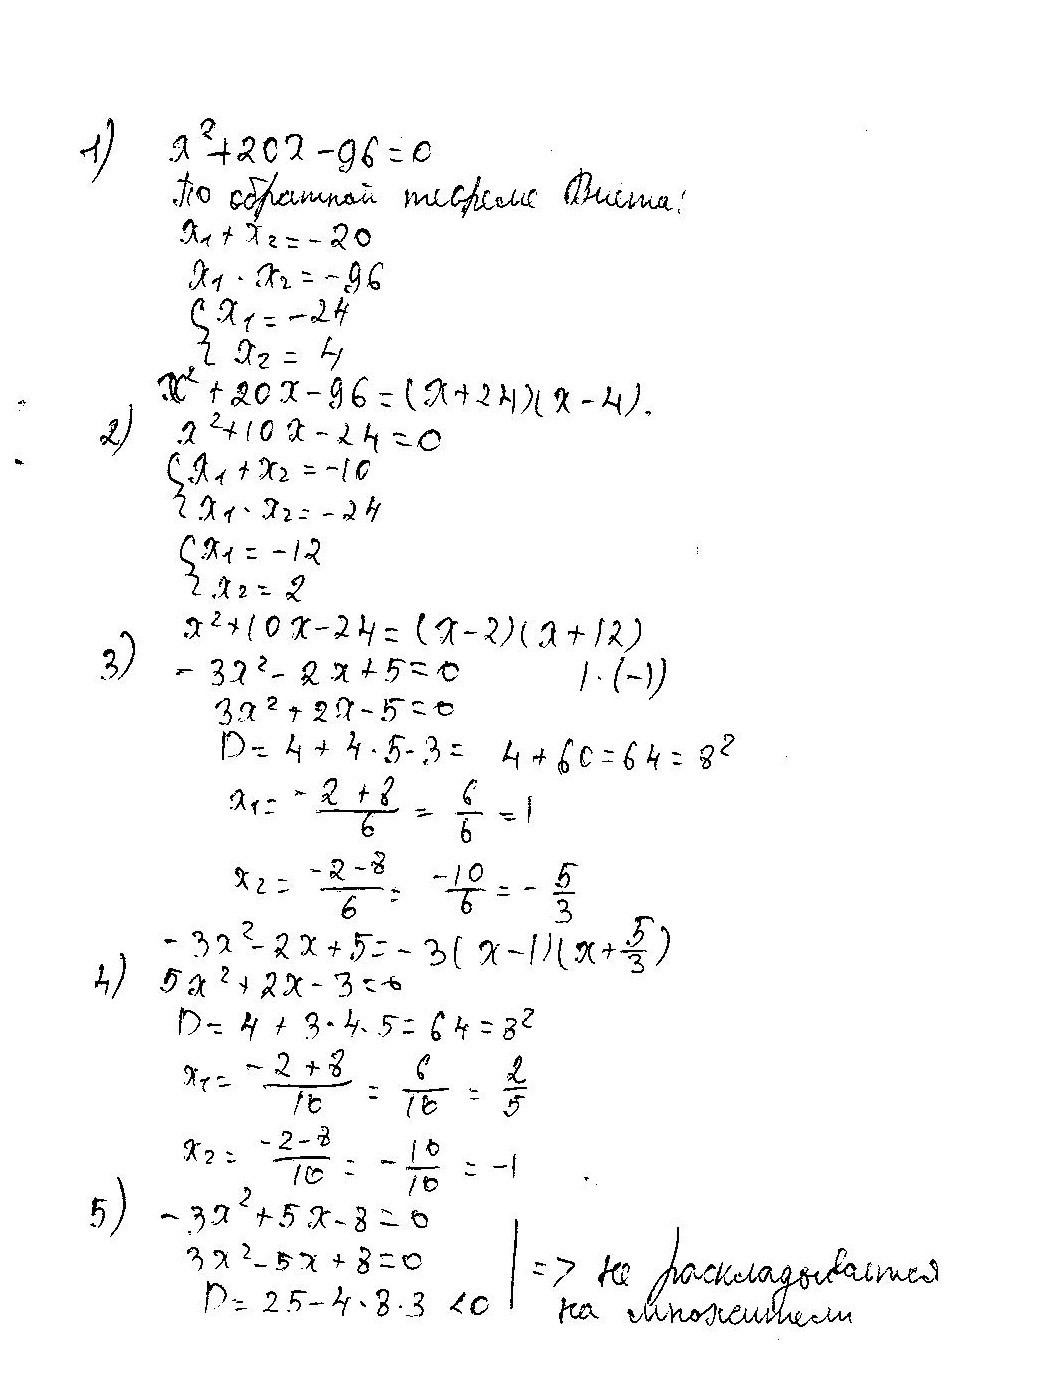 1) x²+20x-96=0
По обратной теореме Виета:
x₁+x₂=-20
x₁·x₂=-96
{x₁=-24
{x₂=4
x²+20x-96=(x+24)(x-4).
2) x²+10x-24=0
{x₁+x₂=-10
{x₁·x₂=-24
{x₁=-12
{x₂=2
x²+10x-24=(x-2)(x+12)
3) -3x²-2x+5=0 |·(-1)
3x²+2x-5=0
D=4+4·5·3= 4+60=64=8²
x₁=-2+8/6=6/6=1
x₂=-2-8/6=-10/6=-5/3
-3x²-2x+5=-3(x-1)(x+5/3)
4) 5x²+2x-3=0
D=4+3·4·5=64=8²
x₁=-2+8/10=6/10=2/5
x₂=-2-8/10=-10/10=-1
5) -3x²+5x-8=0
3x²-5x+8=0 | => не раскладывается
D=25-4·8·3<0 | на множители